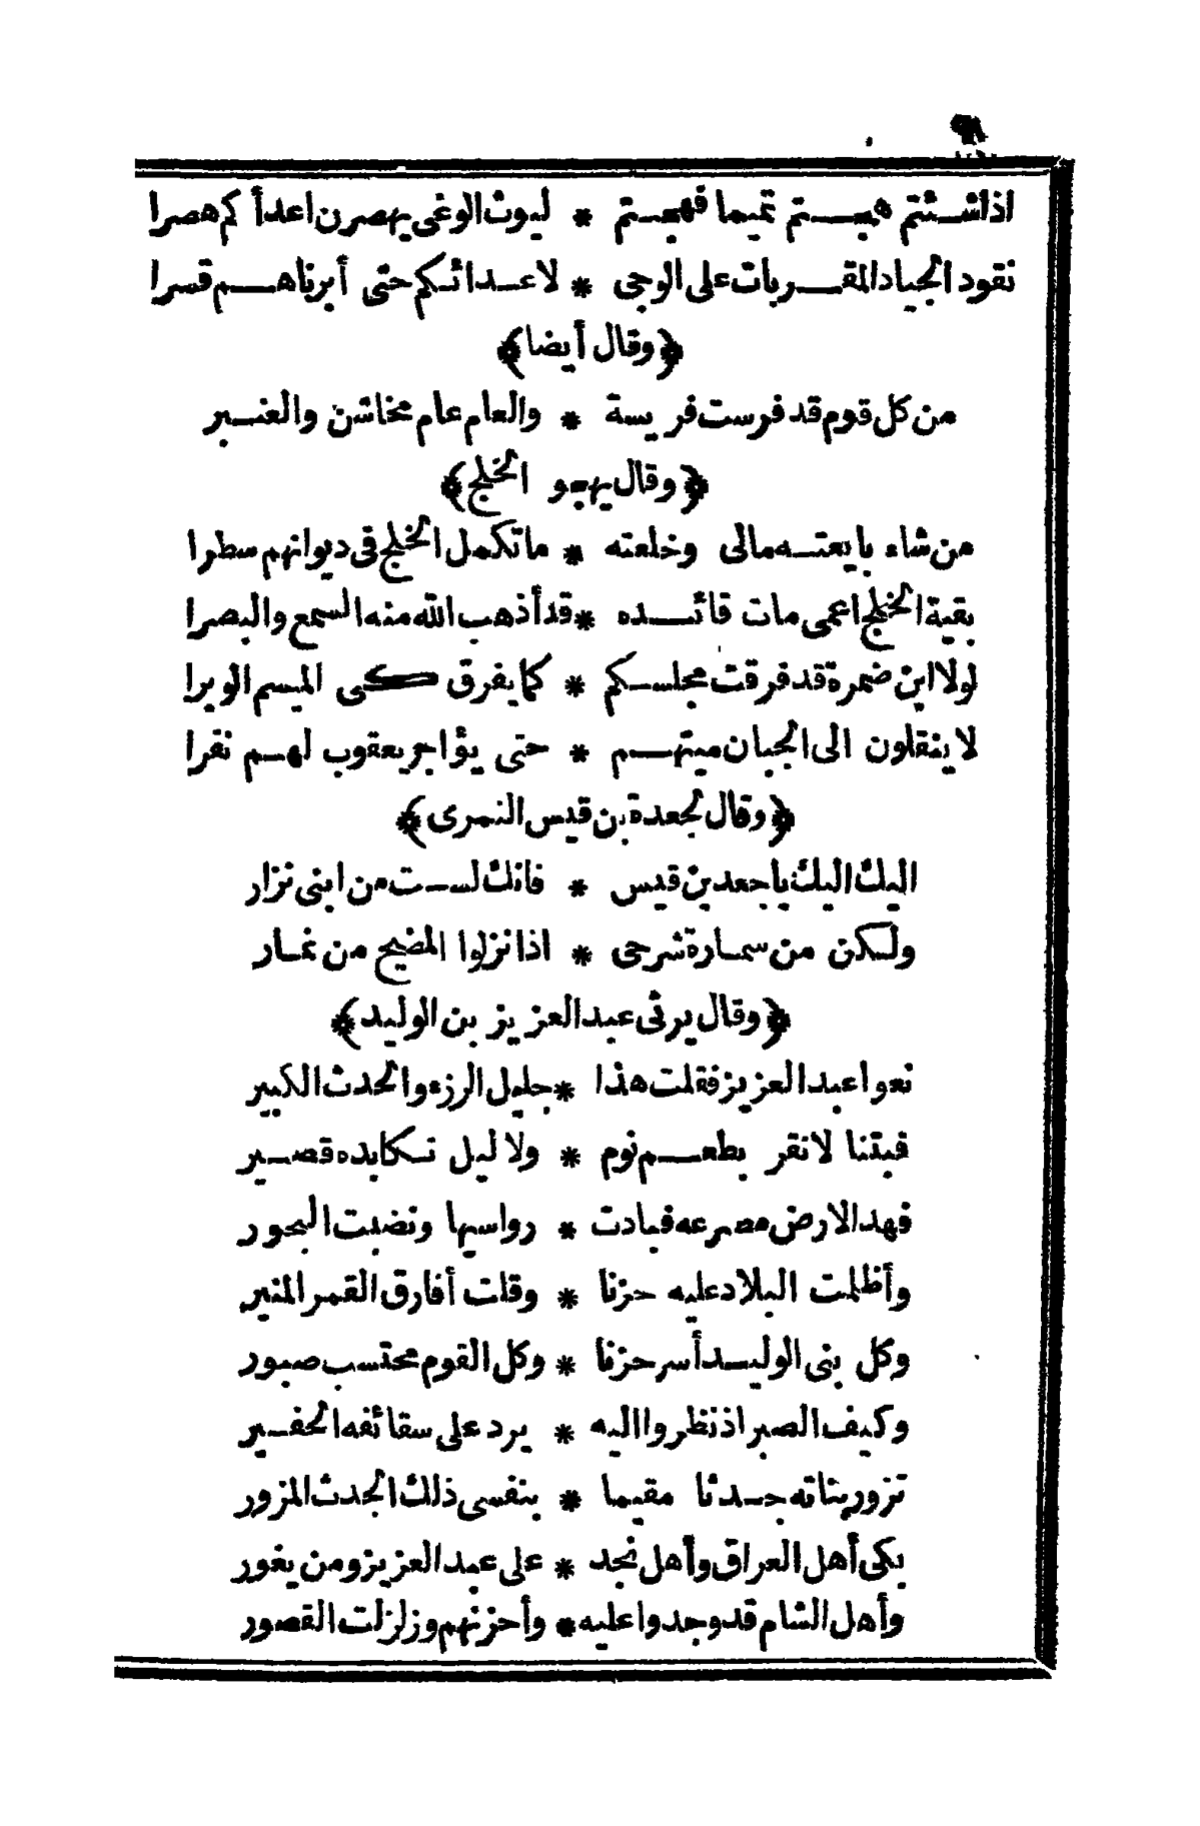 اذاشئتم هجتم تميما فهجتم * ليوث الوغى يهصرن اعدأ كم هصرا
نقود الجياد المقربات على الوجى * لاعدائكم حتى أبرناهم قسرا
﴿وقال أيضا﴾
من كل قوم قد فرست فريسة * والعام عام مخاشن والعنبر
﴿وقال يهجو الخلج﴾
من شاء بايعته مالى وخلعته * ماتكمل الخلج فى ديوانهم سطرا
بقية الخلج اعمى مات قائده * قد أذهب الله منه السمع والبصرا
لولا ابن ضمرة قد فرقت مجلسكم * كما يفرق كى الميسم الوبرا
لا ينقلون الى الجبان ميتهم * حتى يؤاجر يعقوب لهم نفرا
﴿وقال لجعدة بن قيس النمرى﴾
اليك اليك يا جعد بن قيس * فانك لست من ابنى نزار
ولكن من سمارة شرحى * اذا نزلوا المضيح من غمار
﴿وقال يرثى عبد العزيز بن الوليد﴾
نعوا عبد العزيز فقلت هذا * جليل الرزء والحدث الكبير
فبتنا لا نقر بطعم نوم * ولا ليل نكابده قصير
فهد الارض مصرعه فبادت * رواسيها ونضبت البحور
وأظلمت البلاد عليه حزنا * وقلت أفارق القمر المنير
وكل بنى الوليد أسر حزنا * وكل القوم محتسب صبور
وكيف الصبر اذ نظروا اليه * يرد على سقائفه الحفير
تزور بناته جدثا مقيما * بنفسى ذلك الجدث المزور
بكى أهل العراق وأهل نجد * على عبد العزيز ومن يغور
وأهل الشام قد وجدوا عليه * وأحزنهم وزلزلت القصور